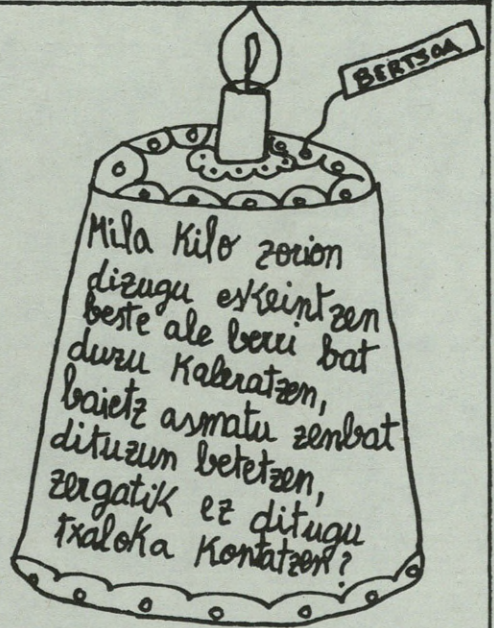 BERTSOA
Mila Kilo zorion
dizugu eskeintzen
beste ale berri bat
duzu Kaleratzen,
baietz asmatu zenbat
dituzun betetzen,
zergatik ez ditugu
txaloka Kontatzen?